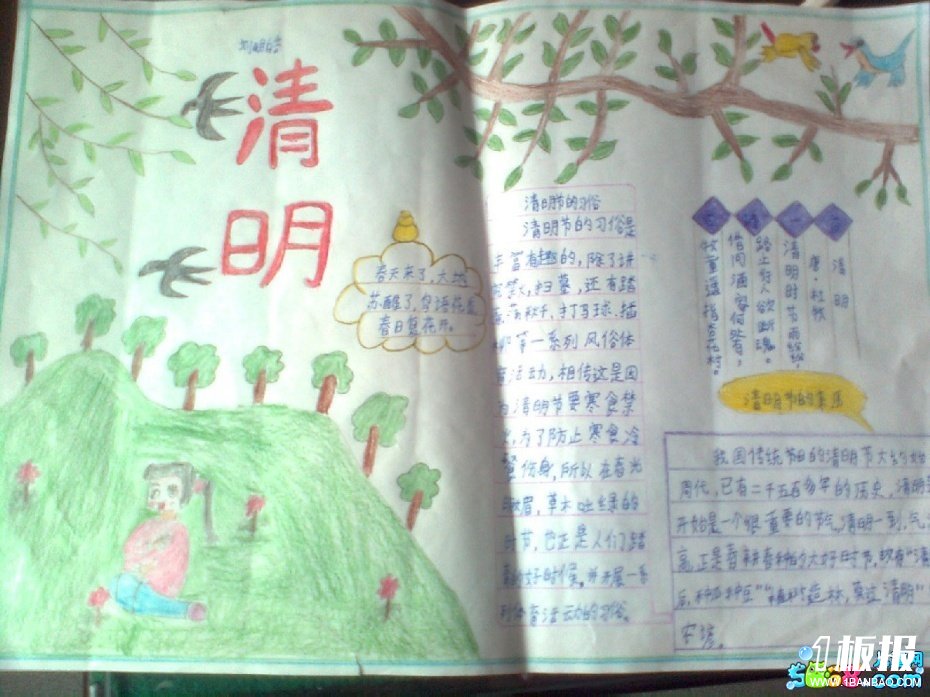 清
明
春天来了，大地
苏醒了，鸟语花香，
春日夏花开。
清明节的习俗
清明节的习俗是
丰富有趣的，除了讲
究禁火，扫墓，还有踏
青，荡秋千，打马球，插
柳等一系列风俗体
育活动，相传这是因
为清明节要寒食禁
火，为了防止寒食冷
餐伤身，所以在春光
明眉，草木吐绿的
时节，也正是人们踏
青的好时候，并开展一系
列体育活动的习俗。
古诗一首
清明
唐·杜牧
清明时节雨纷纷，
路上行人欲断魂。
借问酒家何处有，
牧童遥指杏花村
清明节的来历
我国传统节日的清明节大约始
周代，已有二千五百多年的历史，清明是
开始是一个很重要的节气，清明一到，气
高，正是春耕春种的大好时节，故有“清
后，种瓜种豆”“植树造林，莫过清明”
农谚。
1板报
WWW.1BANBAO.COM